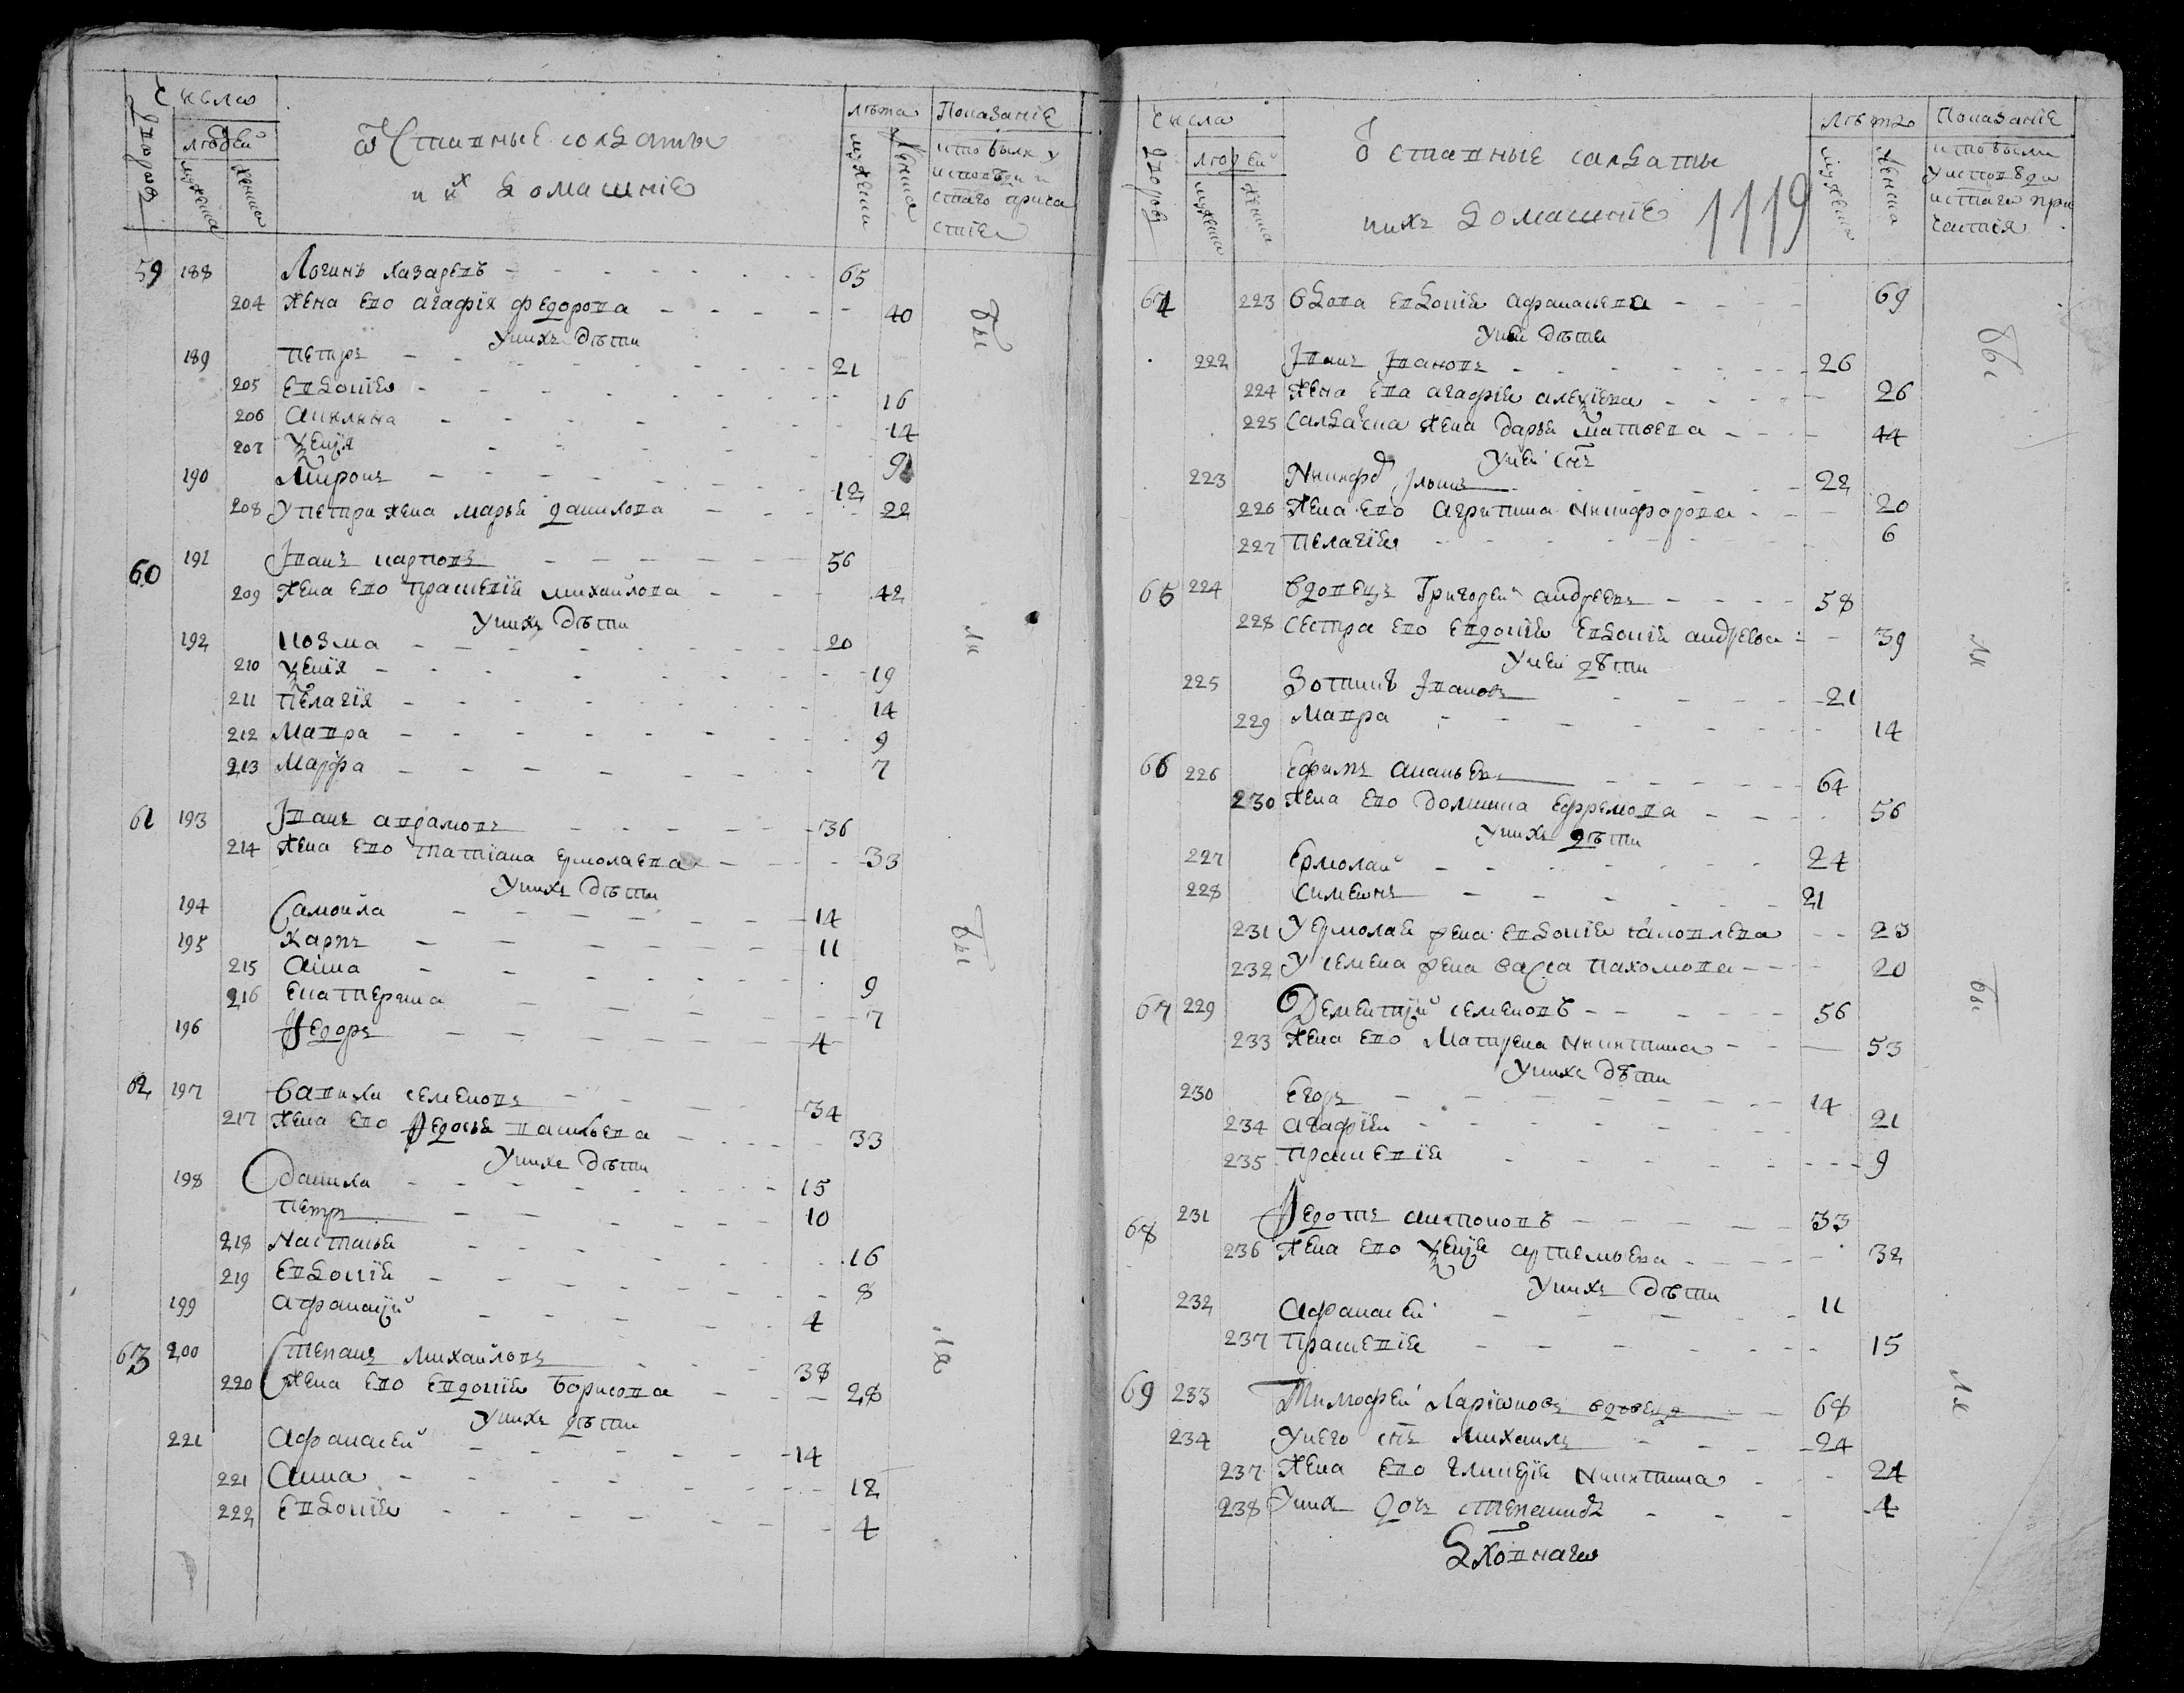 Числа
дворовъ
людей
мужеска
женска
Ѿставные солдаты
и их домашнiе
лѣта
мужеска
женска
Показанiе
кто былъ у
исповѣди и
стаго прича
стiя
59 188 Логинъ Лазаревъ 65
204 жена Ево агафiя федорова 40
У них дѣти
189 петръ 21
205 Евдокiя 16
206 акилина 14
207 Ѯенiя 9
190 Миронъ 12
208 У петра жена марья данилова 22
60 191 Iванъ карповъ 56
209 жена Ево прасковiя михайлова 42
У нихъ дѣти
192 козма 20
210 Ѯенiя 19
211 Пелагiя 14
212 Мавра 9
213 Марфа 7
61 193 Iванъ аврамовъ 36
214 жена Ево татiана ермолаева 33
У нихъ дѣти
194 Самоила 14
195 Карпъ 11
215 Анна 9
216 Екатерина 7
196 Ѳедоръ 4
62 197 Вавила семеновъ 34
217 жена Ево Ѳедосья васильева 33
У нихъ дѣти
198 Данила 15
Петръ 10
218 Настасья 16
219 Евдокiя 8
199 афанасiй 4
63 200 Степанъ михайловъ 38
220 жена Ево Евдокiя борисова 28
У нихъ дѣти
221 Афанасей 14
221 Анна 12
222 Евдокiя 4
бы
ли
бы
ля
Числа
дворовъ
людей
мужеска
женска
Ѿставные салдаты
и ихъ домашнiе
1119
лѣта
мужеска
женска
Показанiе
кто были
у исповѣди
и стаго при
частiя
64 223 Вдова Евдокiя афанасьева 69
У ней дѣти
222 Iванъ Iвановъ 26
224 жена Ева агафiя алеѯiева 26
225 Салдатска жена дарья матвева 44
У ней снъ
223 Никифоръ Ильинъ 22
226 жена Ево агрипина никифорова 20
227 пелагiя 6
65 224 вдовецъ Григорей андреевъ 58
228 сестра Ево Евдокiя Евдокiя андрева 39
У ней дѣти
225 Зотикъ Iвановъ 21
229 Мавра 14
66 226 Ефимъ ананьевъ 64
230 жена Ево домника ефремова 56
У нихъ дѣти
227 Ермолай 24
228 Симеонъ 21
231 У Ермолая жена Евдокiя 23
232 У семена жена васса пахомова 20
67 229 Дементiй семеновъ 56
233 жена Ево Матрена никитина 53
У нихъ дѣти
230 Егоръ 14
234 агафiя 21
235 прасковiя 9
68 231 Ѳедотъ антоновъ 33
236 жена Ево Ѯенiя артемьева 32
У нихъ дѣти
232 Афанасей 11
237 прасковiя 15
69 233 Тимофей Ларiоновъ вдовецъ 68
234 У него снъ михаилъ 24
237 жена Ево гликерiя никитина 24
238 У них дочь степанида 4
Духовнагω
бы
ли
бы
ля